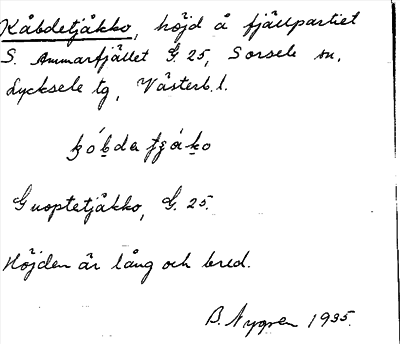 Kåbdetjåkko, höjd å fjällpartiet
S. Ammarfjället G. 25, Sorsele sn,
Lycksele tg, Västerb. l.
kóbda fzáko
Guoptetjåkko, G. 25.
Höjden är lång och bred.
B. Nygren 1935.